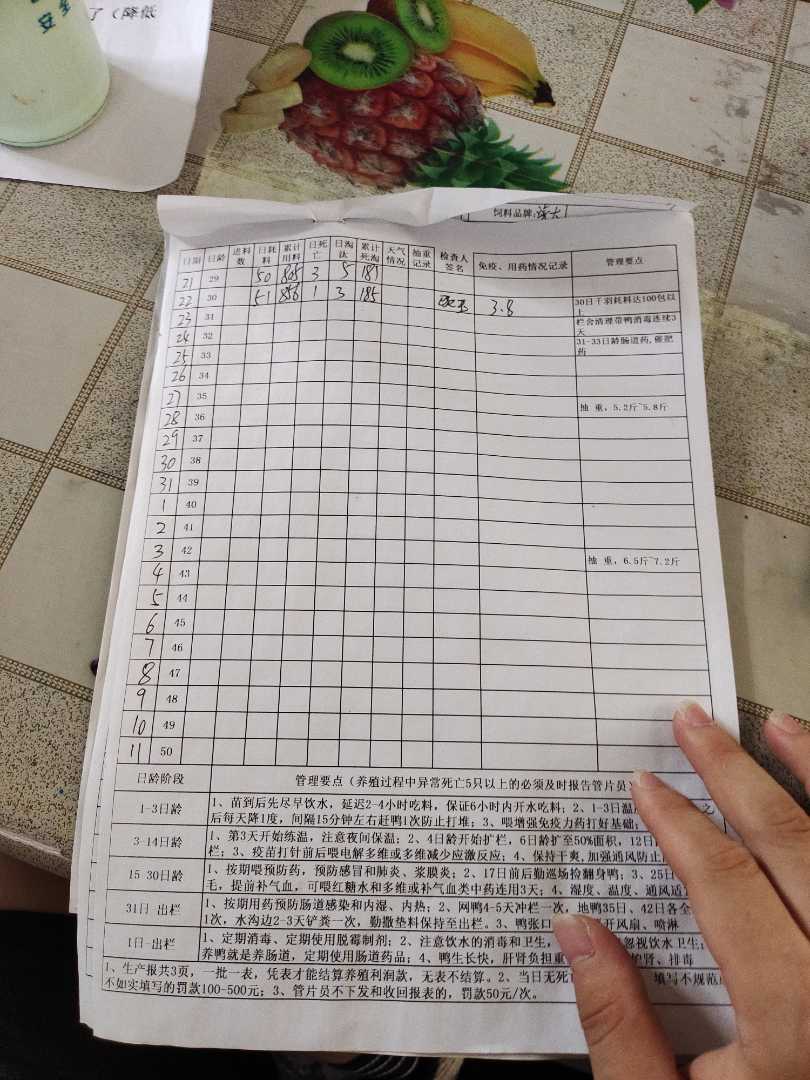 了（降低
饲料品牌:
日期 日龄 进料数 日耗料 累计用料 日死亡 日淘汰 累计死淘 天气情况 抽重记录 检查人签名 免疫、用药情况记录 管理要点
21 29 50 805 3 5 181
22 30 51 856 1 3 185 3.8 30日千羽耗料达100包以上
23 31 栏舍清理带鸭消毒连续3天
24 32 31-33日龄肠道药,催肥药
25 33
26 34
27 35 抽 重，5.2斤~5.8斤
28 36
29 37
30 38
31 39
1 40
2 41
3 42 抽 重，6.5斤~7.2斤
4 43
5 44
6 45
7 46
8 47
9 48
10 49
11 50
日龄阶段 管理要点（养殖过程中异常死亡5只以上的必须及时报告管片员
1-3日龄 1、苗到后先尽早饮水，延迟2-4小时吃料，保证6小时内开水吃料；2、1-3日温
后每天降1度，间隔15分钟左右赶鸭1次防止打堆；3、喂增强免疫力药打好基础；
3-14日龄 1、第3天开始练温，注意夜间保温；2、4日龄开始扩栏，6日龄扩至50%面积，12日
栏；3、疫苗打针前后喂电解多维或多维减少应激反应；4、保持干爽,加强通风防止
15-30日龄 1、按期喂预防药，预防感冒和肺炎、浆膜炎；2、17日前后勤巡场捡翻身鸭；3、25日
毛，提前补气血，可喂红糖水和多维或补气血类中药连用3天；4、湿度、温度、通风适
31日-出栏 1、按期用药预防肠道感染和内湿、内热；2、网鸭4-5天冲栏一次，地鸭35日、42日各全
1次，水沟边2-3天铲粪一次，勤撒垫料保持至出栏。3、鸭张口 开风扇、喷淋
1日-出栏 1、定期消毒、定期使用脱霉制剂；2、注意饮水的消毒和卫生， 忽视饮水卫生；
养鸭就是养肠道，定期使用肠道药品；4、鸭生长快，肝肾负担重 护肾、排毒
1、生产报共3页，一批一表，凭表才能结算养殖利润款，无表不结算。2、当日无死 填写不规范
不如实填写的罚款100-500元；3、管片员不下发和收回报表的，罚款50元/次。